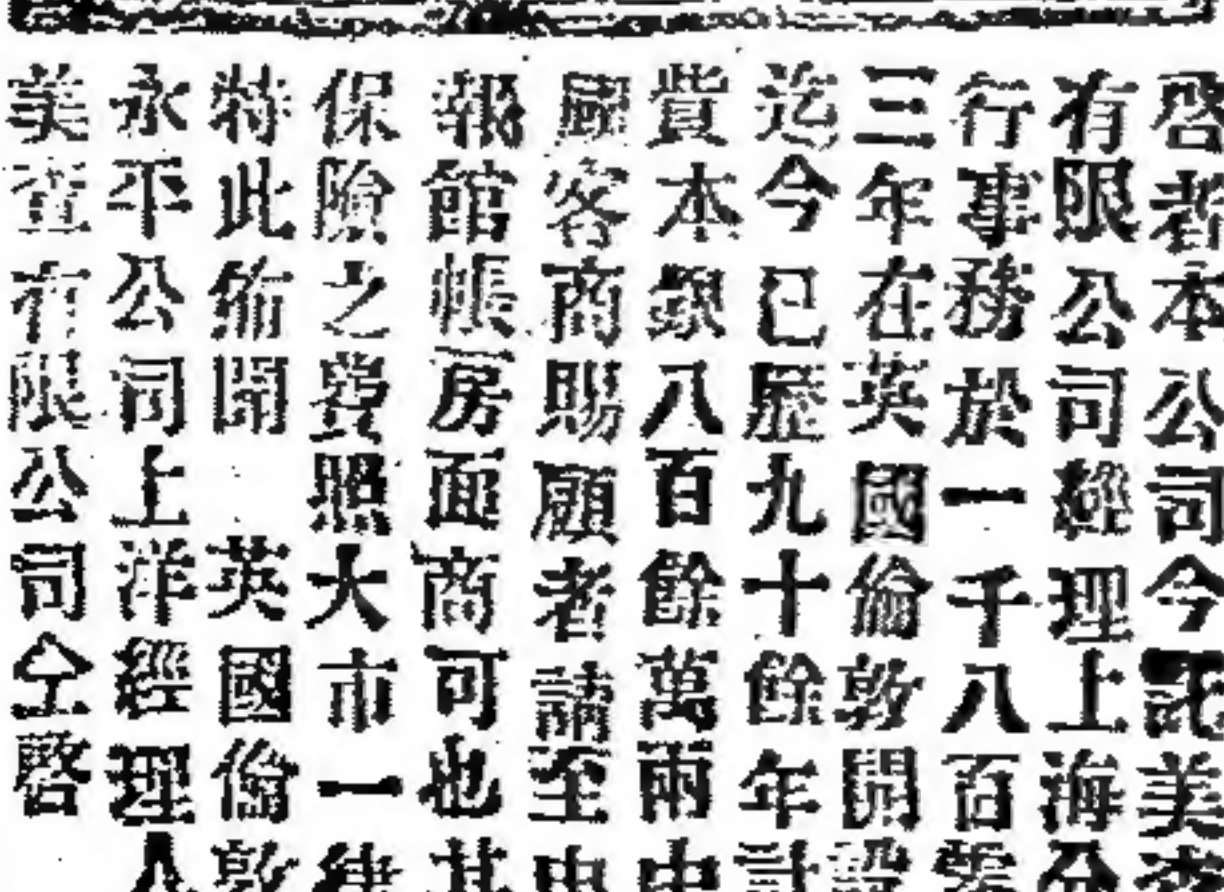 啓者本公司今託美查
有限公司經理上海分
行事務於一千八百零
三年在英國倫敦開設
迄今已歷九十餘年計
資本銀八百餘萬兩中
國客商賜顧者請至申
報館帳房面商可也其
保險之費照大市一律
特此佈聞 英國倫敦
永平公司上洋經理人
美查有限公司仝啓